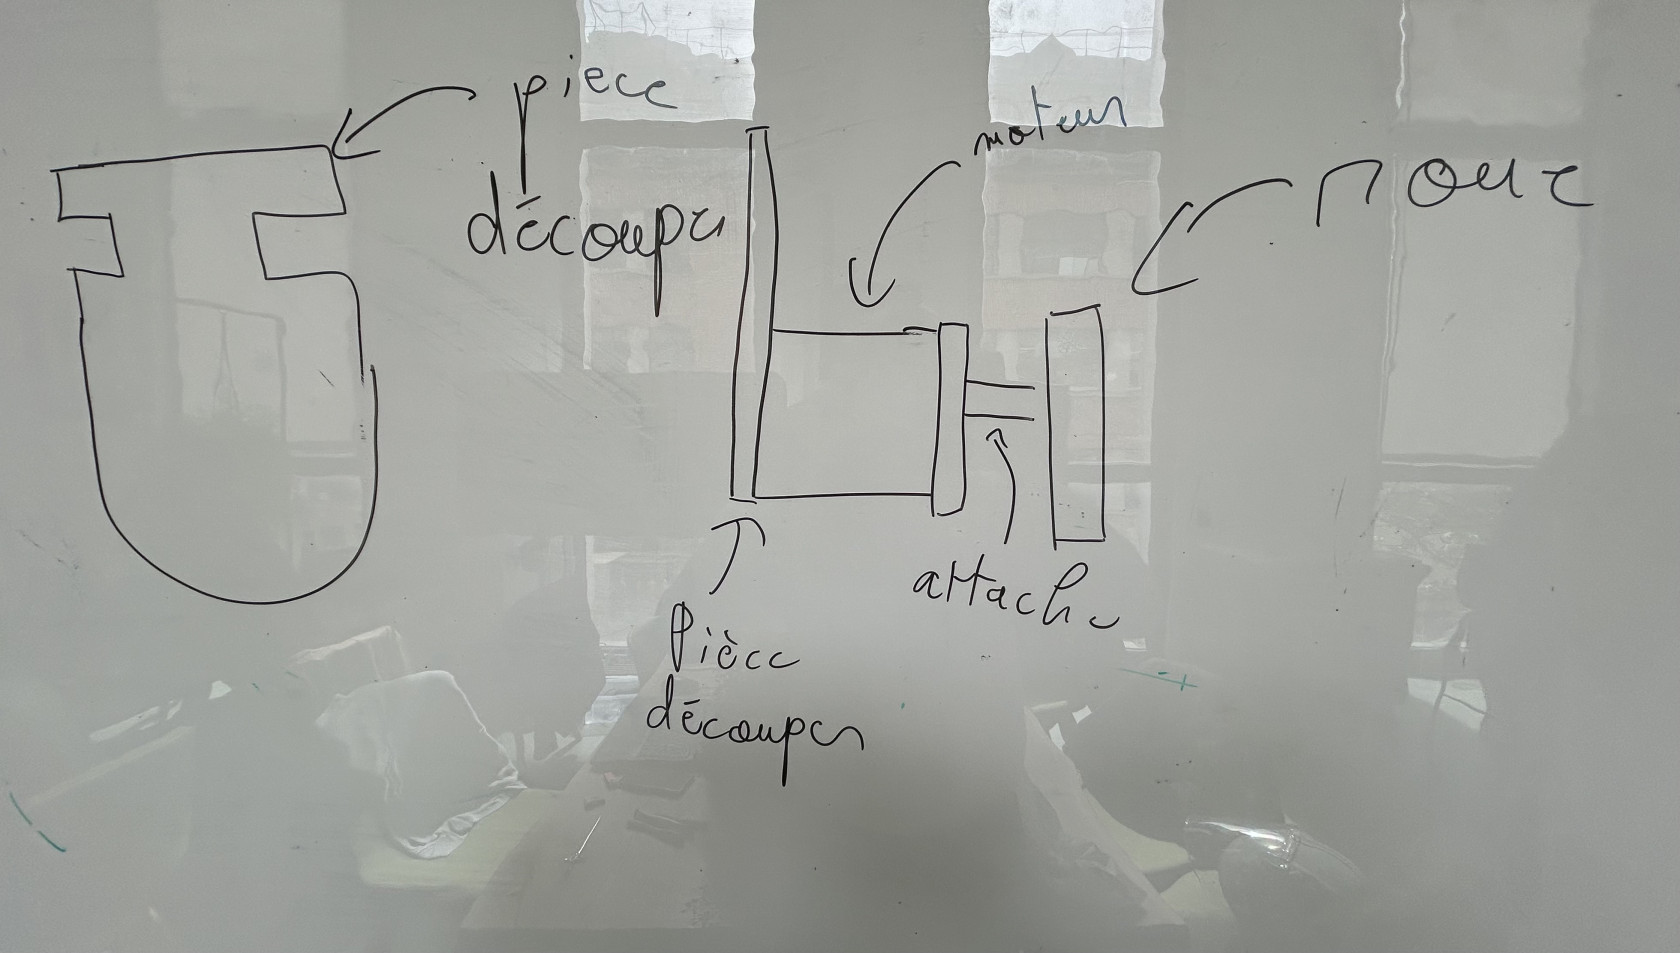 piece
découpé
moteur
roue
attache
Pièce
découper